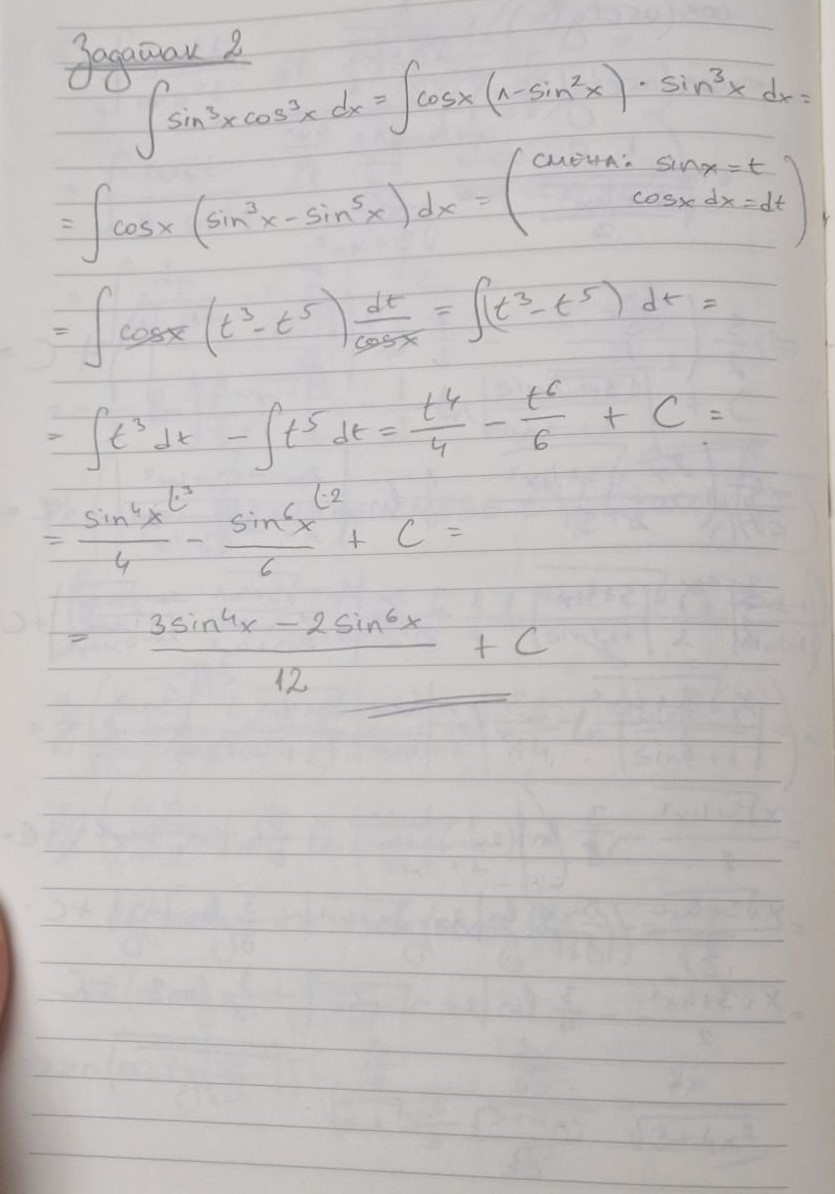 Задатак 2
∫ sin³x cos³x dx = ∫ cosx (1-sin²x) · sin³x dx =
= ∫ cosx (sin³x - sin⁵x) dx = ( смена: sinx = t
cosx dx = dt )
= ∫ cosx (t³ - t⁵) dt/cosx = ∫ (t³ - t⁵) dt =
= ∫ t³ dt - ∫ t⁵ dt = t⁴/4 - t⁶/6 + C =
= sin⁴x/4 (·3 - sin⁶x/6 (·2 + C =
= (3sin⁴x - 2sin⁶x)/12 + C